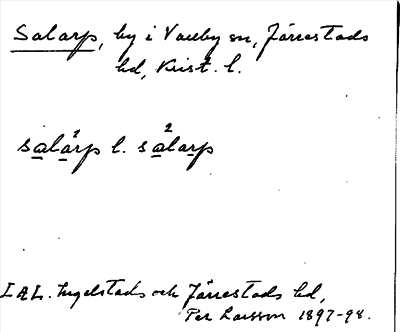 Salarp, by i Vallby sn, Järrestads
hd, Krist. l.
sala²rp l. sa²larp
LAL. Ingelstads och Järrestads hd,
Per Larsson 1897-98.